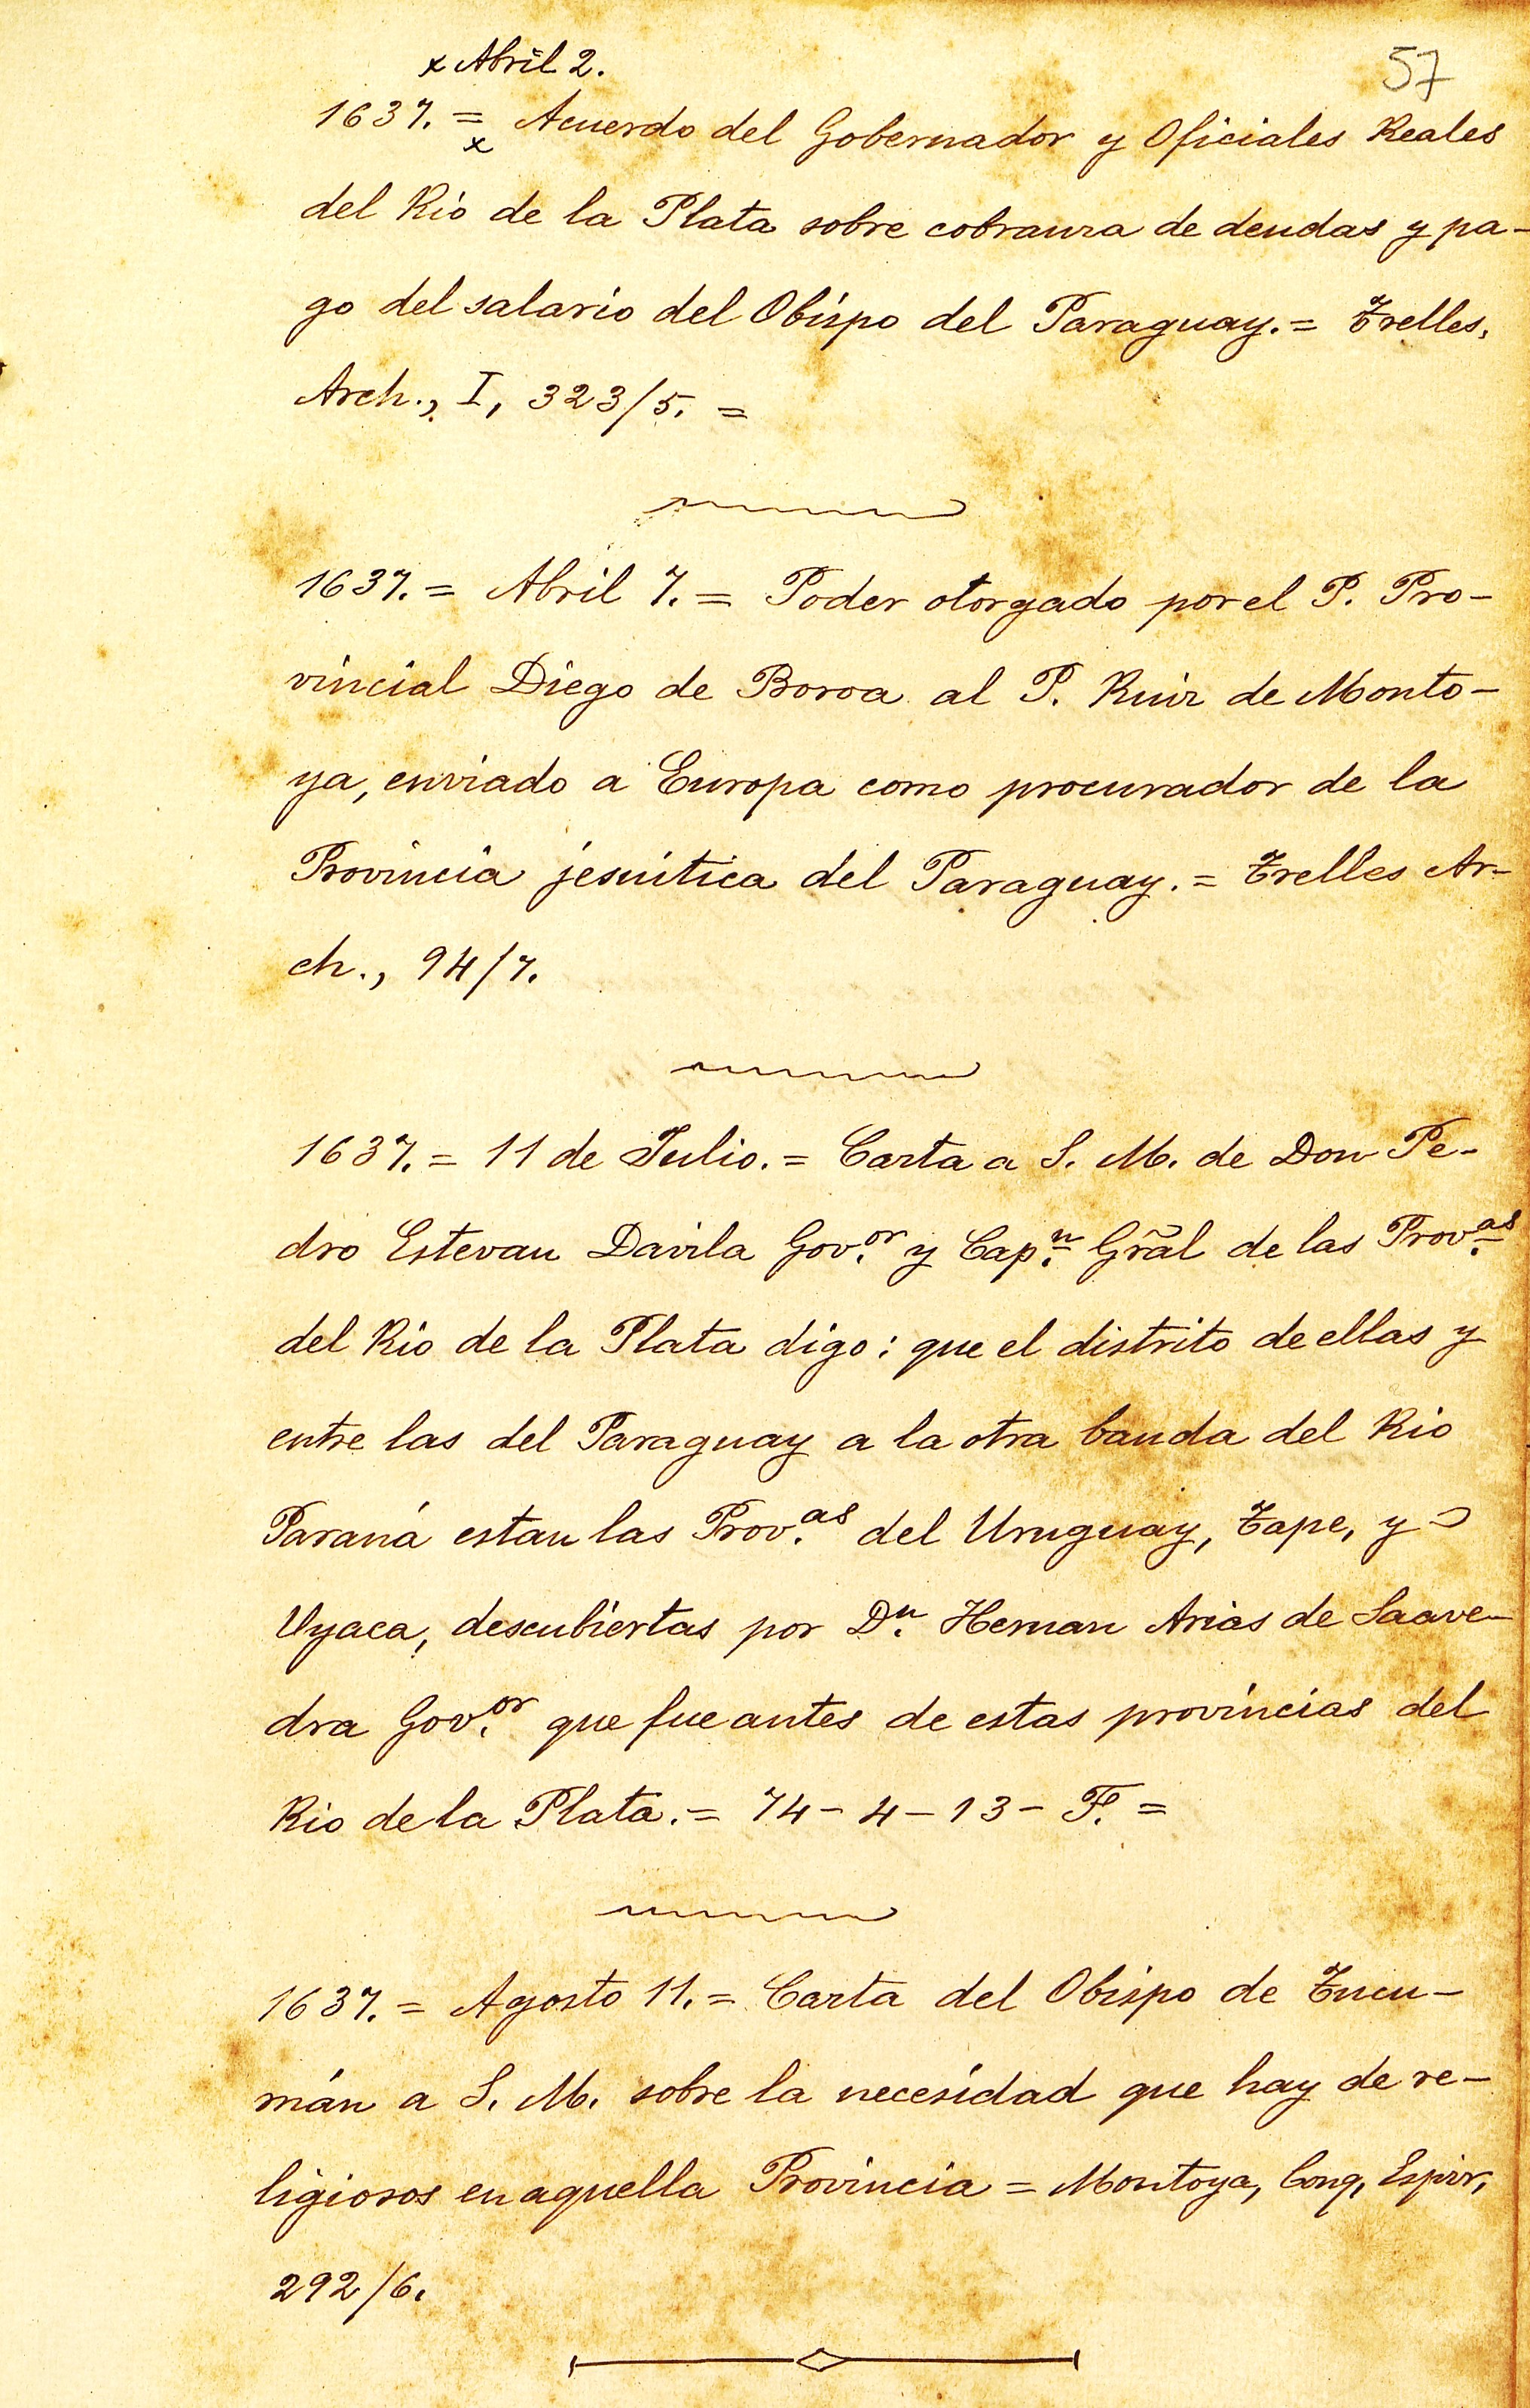 57
x Abril 2.
1637. = x Acuerdo del Gobernador y Oficiales Reales
del Rio de la Plata sobre cobranza de deudas y pa-
go del salario del Obispo del Paraguay. = Trelles,
Arch., I, 323/5. =
1637. = Abril 7. = Poder otorgado por el P. Pro-
vincial Diego de Boroa al P. Ruiz de Monto-
ya, enviado a Europa como procurador de la
Provincia jesuítica del Paraguay. = Trelles Ar-
ch., 94/7.
1637. = 11 de Julio. = Carta a S. M. de Don Pe-
dro Estevan Davila Gov.or y Cap.n Grãl de las Prov.as
del Rio de la Plata digo: que el distrito de ellas y
entre las del Paraguay a la otra banda del Rio
Paraná estan las Prov.as del Uruguay, Tape, y
Vyaca, descubiertas por D.n Hernan Arias de Saave-
dra Gov.or que fue antes de estas provincias del
Rio de la Plata. = 74 - 4 - 13 - F. =
1637. = Agosto 11. = Carta del Obispo de Tucu-
mán a S. M. sobre la necesidad que hay de re-
ligiosos en aquella Provincia = Montoya, Conq, Espir,
292/6.